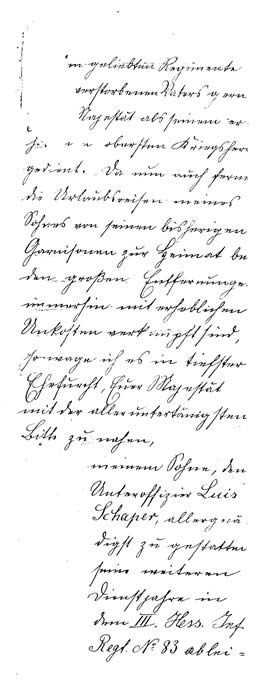 m geliebten Regimente
verstorbenen Vaters gern
Majestät als seinem er
obersten Kriegsher
gedient. Da nun auch fern
die Urlaubsreisen meines
Sohnes von seinen bisherigen
Garnisonen zur Heimat be
den großen Entfernunge
immerhin mit erheblichen
Unkosten verknüpft sind,
so wage ich es in tiefster
Ehrfurcht, Euer Majestät
mit der alleruntertänigsten
Bitte zu nahen,
meinem Sohne, den
Unteroffizier Luis
Schaper, allergnä
digst zu gestatten
seine weiteren
Dienstjahre in
dem III. Hess. Inf.
Regt. No 83 ablei=